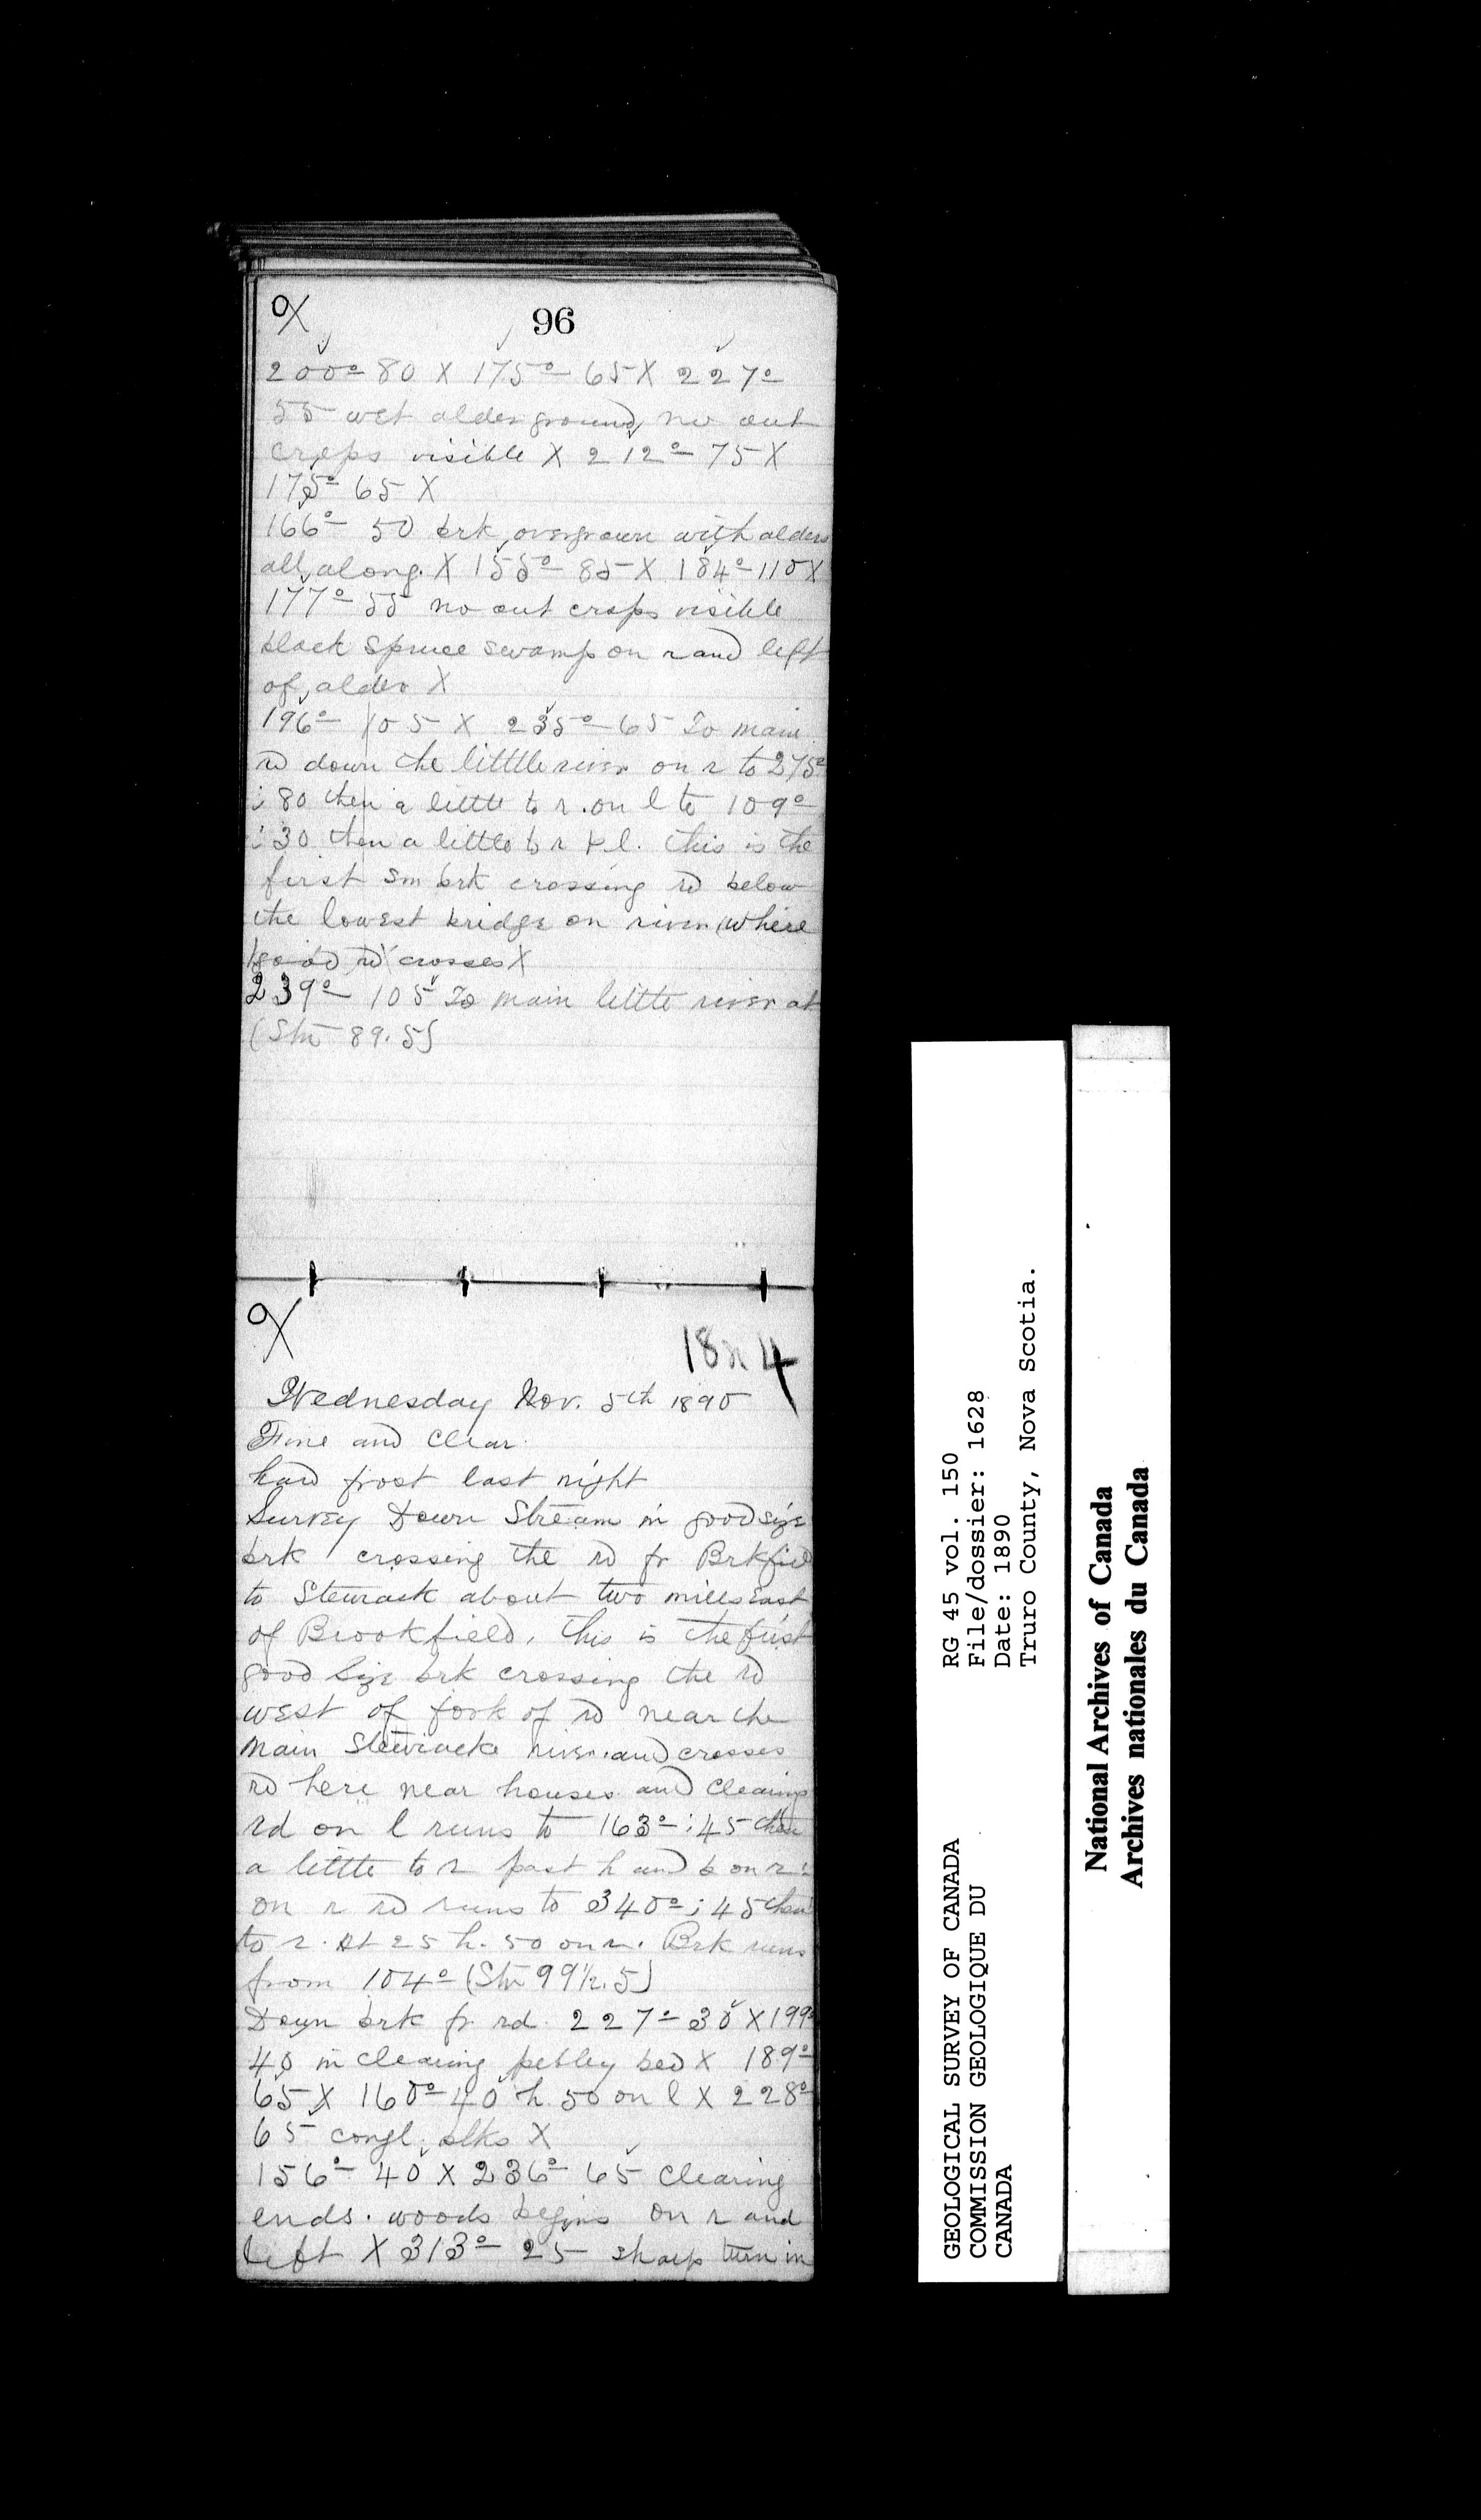 96
200° 80 X 175° 65 X 227°
55 wet alder ground, no out
crops visible X 212° 75 X
175° 65 X
166° 50 brk overgrown with alders
all along. X 155° 85 X 184° 110 X
177° 55 no out crops visible
black spruce swamp on r and left
of alder X
196° 105 X 235° 65 To main
rd down the littlle river on r to 275°
; 80 then a little to r. on l to 109°
; 30 then a little to r & l. this is the
first sm brk crossing rd below
the lowest bridge on river (where
good rd crosses X
239° 105 To main little river at
(Stn 89.5)
Wednesday Nov. 5th 1890
Fine and clear
hard frost last night
Survey Down Stream in good size
brk crossing the rd fr Brkfield
to Stewiack about two miles East
of Brookfield, this is the first
good size brk crossing the rd
west of fork of rd near the
main Stewiacke river. and crosses
rd here near houses and clearings
rd on l runs to 163° ; 45 then
a little to r past h and b on r :
on r rd runs to 340° ; 45 then
to r. At 25 h. 50 on r. Brk runs
from 104° (Stn 99½.5)
Down brk fr rd. 227° 30 X 199°
40 in clearing pebbly bed X 189°
65 X 160° 40 h. 50 on l X 228°
65 congl. blks X
156° 40 X 236° 65 clearing
ends. woods begins on r and
left X 313° 25 sharp turn in
GEOLOGICAL SURVEY OF CANADA
COMMISSION GEOLOGIQUE DU
CANADA
RG 45 vol. 150
File/dossier: 1628
Date: 1890
Truro County, Nova Scotia.
National Archives of Canada
Archives nationales du Canada